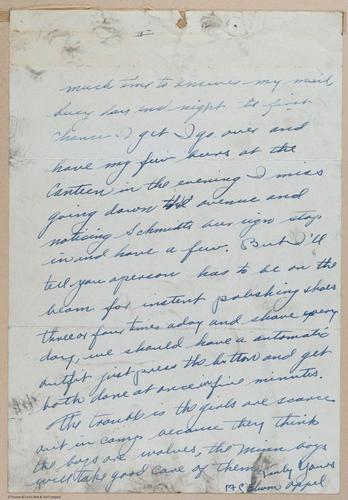 II
much time to answer my mail
busy day and night the first
chance I get I go over and
have my few beers at the
Canteen in the evening I miss
going down the avenue and
noticing Schmitts beer sign stop
in and have a few. But I'll
tell you aperson has to be on the
beam for instent polishing shoes
three or four times aday and shave every
day, we should have a automatic
outfit just press the button and get
both done at once in five minutes.
The trouble is the girls are scarce
out in camp because they think
the boys are wolves, the Minn boys
will take good care of them. Truly Yours
Pfc Edwin Appel